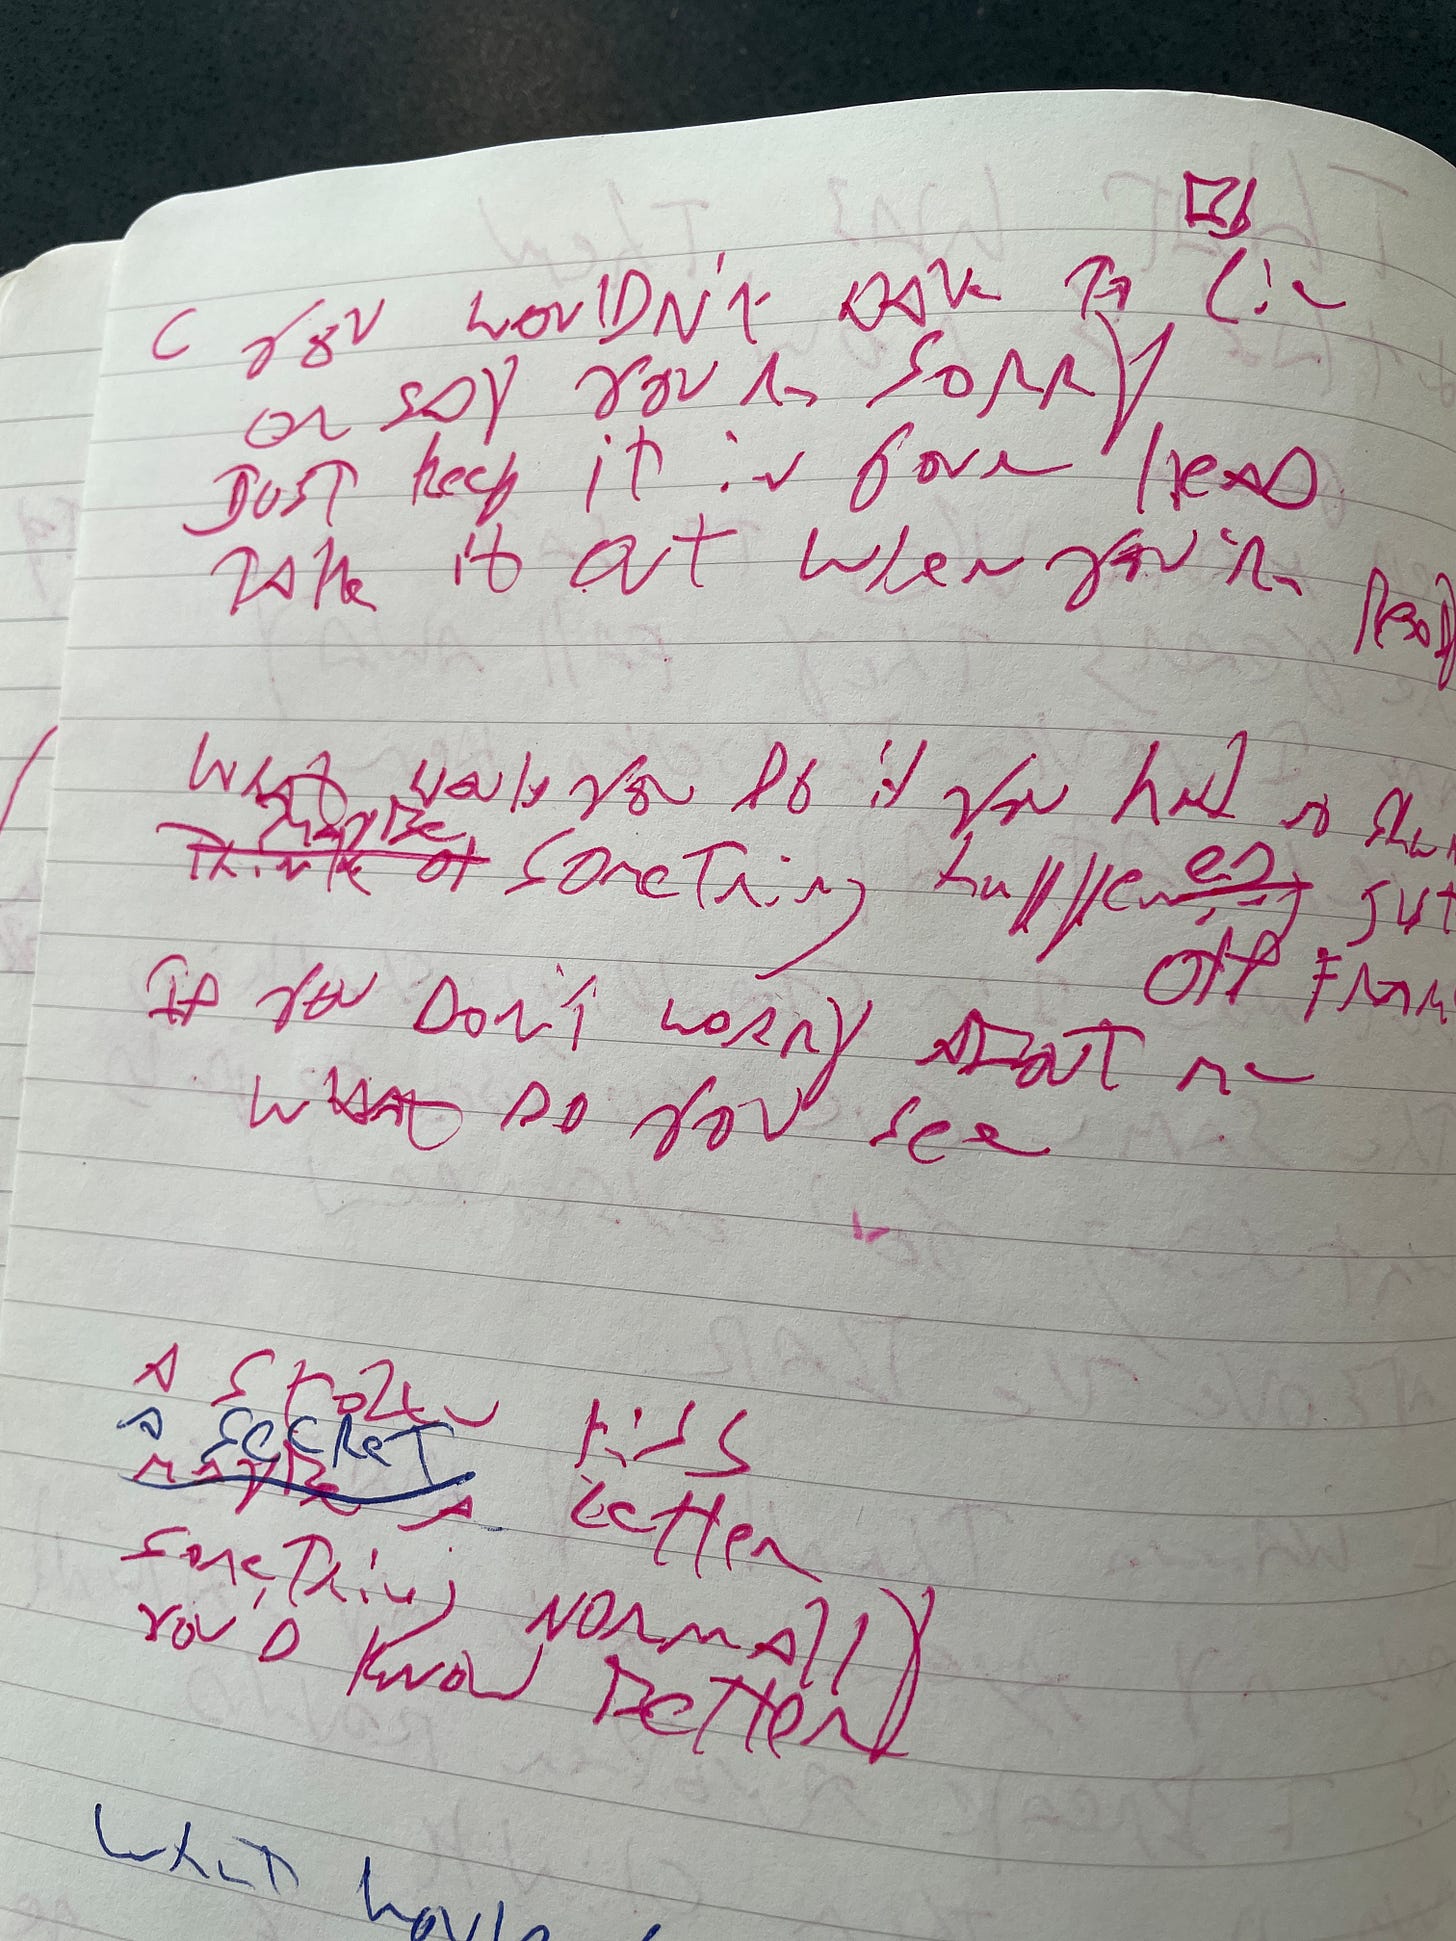 C you wouldn't ask to lie
or say you're sorry
Just keep it in your head
take it out when you're
What would you do if you had a
maybe
think of something happen ed
off FRAM
If you don't worry about me
what do you see
A stolen kiss
a secret
maybe a letter
something normally
you'd know better
what would